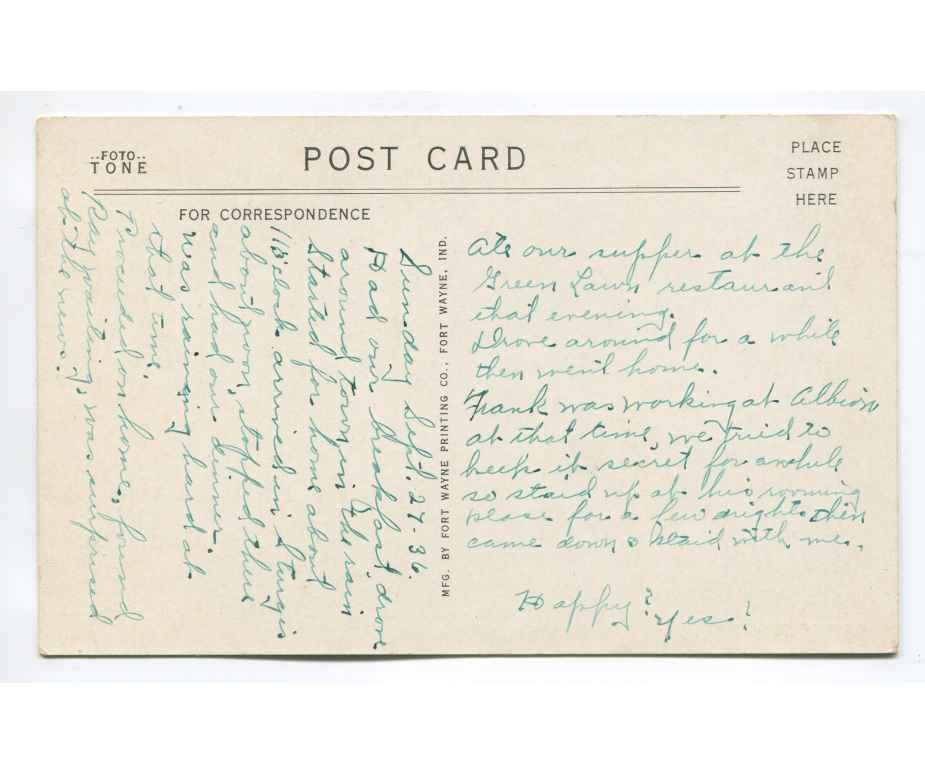 ..FOTO..
TONE
POST CARD
PLACE
STAMP
HERE
FOR CORRESPONDENCE
Sunday Sept. 27-36.
Had our breakfast drove
around town in the rain
Started for home about
11 o'clock arrived in Sturgis
about noon, stopped there
and had our dinner.
was raining hard at
that time.
Proceeded on home, found
Ray waiting, was surprised
at the news?
MFG. BY FORT WAYNE PRINTING CO., FORT WAYNE, IND.
Ate our supper at the
Green Lawn restaurant
that evening.
Drove around for a while
then went home.
Frank was working at Albion
at that time, we tried to
keep it secret for awhile
so staid up at his rooming
place for a few nights then
came down & staid with me.
Happy? Yes!